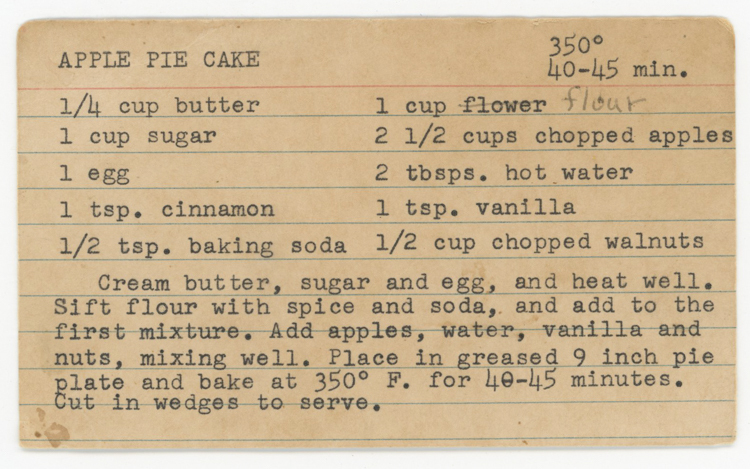 APPLE PIE CAKE
350°
40-45 min.
1/4 cup butter
1 cup sugar
1 egg
1 tsp. cinnamon
1/2 tsp. baking soda
1 cup flower flour
2 1/2 cups chopped apples
2 tbsps. hot water
1 tsp. vanilla
1/2 cup chopped walnuts
Cream butter, sugar and egg, and heat well.
Sift flour with spice and soda, and add to the
first mixture. Add apples, water, vanilla and
nuts, mixing well. Place in greased 9 inch pie
plate and bake at 350° F. for 40-45 minutes.
Cut in wedges to serve.